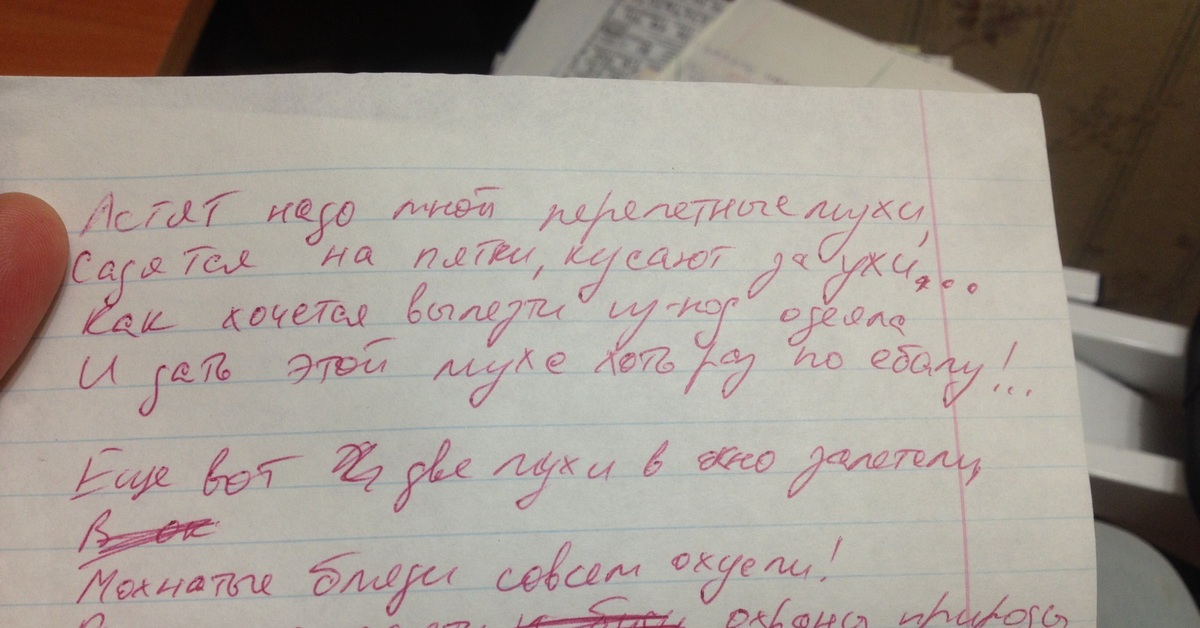 Летят надо мной перелетные мухи,
Садятся на пятки, кусают за ухи...
Как хочется вылезти из-под одеяла
И дать этой мухе хоть раз по ебалу!...
Еще вот две мухи в окно залетели,
В ок
Мохнатые бляди совсем охуели!
охраны природы